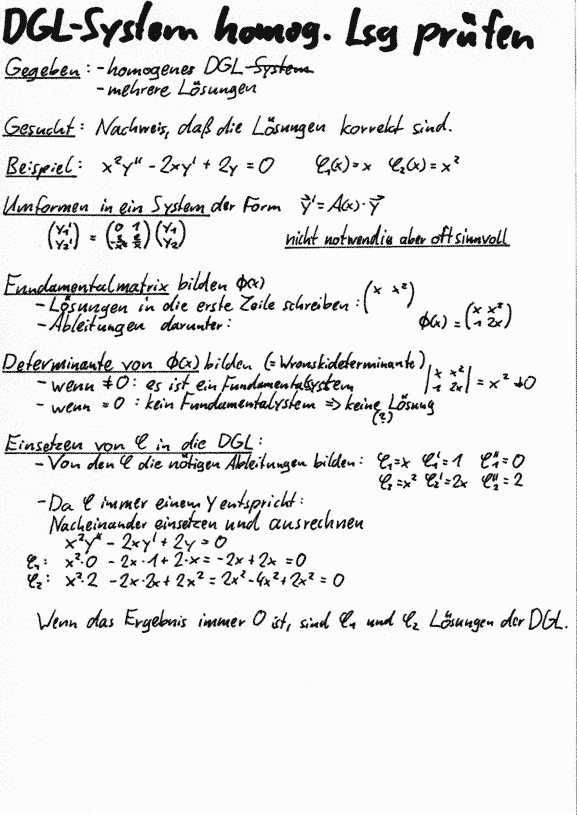 DGL-System homog. Lsg prüfen
Gegeben: - homogenes DGL-System
- mehrere Lösungen
Gesucht: Nachweis, daß die Lösungen korrekt sind.
Beispiel: x²y'' - 2xy' + 2y = 0 φ₁(x)=x φ₂(x)=x²
Umformen in ein System der Form y⃗' = A(x)·y⃗
(y₁' y₂') = (0 1 ) (y₁ y₂)
nicht notwendig aber oft sinnvoll
Fundamentalmatrix bilden ϕ(x)
- Lösungen in die erste Zeile schreiben: (x x²)
- Ableitungen darunter: ϕ(x) = (x x² 1 2x)
Determinante von ϕ(x) bilden (= Wronskideterminante)
- wenn ≠0: es ist ein Fundamentalsystem |x x² 1 2x| = x² ≠0
- wenn = 0: kein Fundamentalystem => keine Lösung
(?)
Einsetzen von φ in die DGL:
- Von den φ die nötigen Ableitungen bilden: φ₁=x φ₁'=1 φ₁''=0
φ₂=x² φ₂'=2x φ₂''=2
- Da φ immer einem y entspricht:
Nacheinander einsetzen und ausrechnen
x²y'' - 2xy' + 2y = 0
φ₁: x²·0 - 2x·1 + 2·x = -2x + 2x = 0
φ₂: x²·2 - 2x·2x + 2x² = 2x² - 4x² + 2x² = 0
Wenn das Ergebnis immer 0 ist, sind φ₁ und φ₂ Lösungen der DGL.